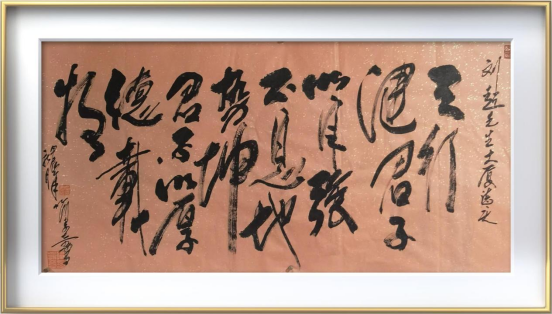 刘先生大
天行
健君子
以自强
不息地
势坤
君子以厚
德载
物